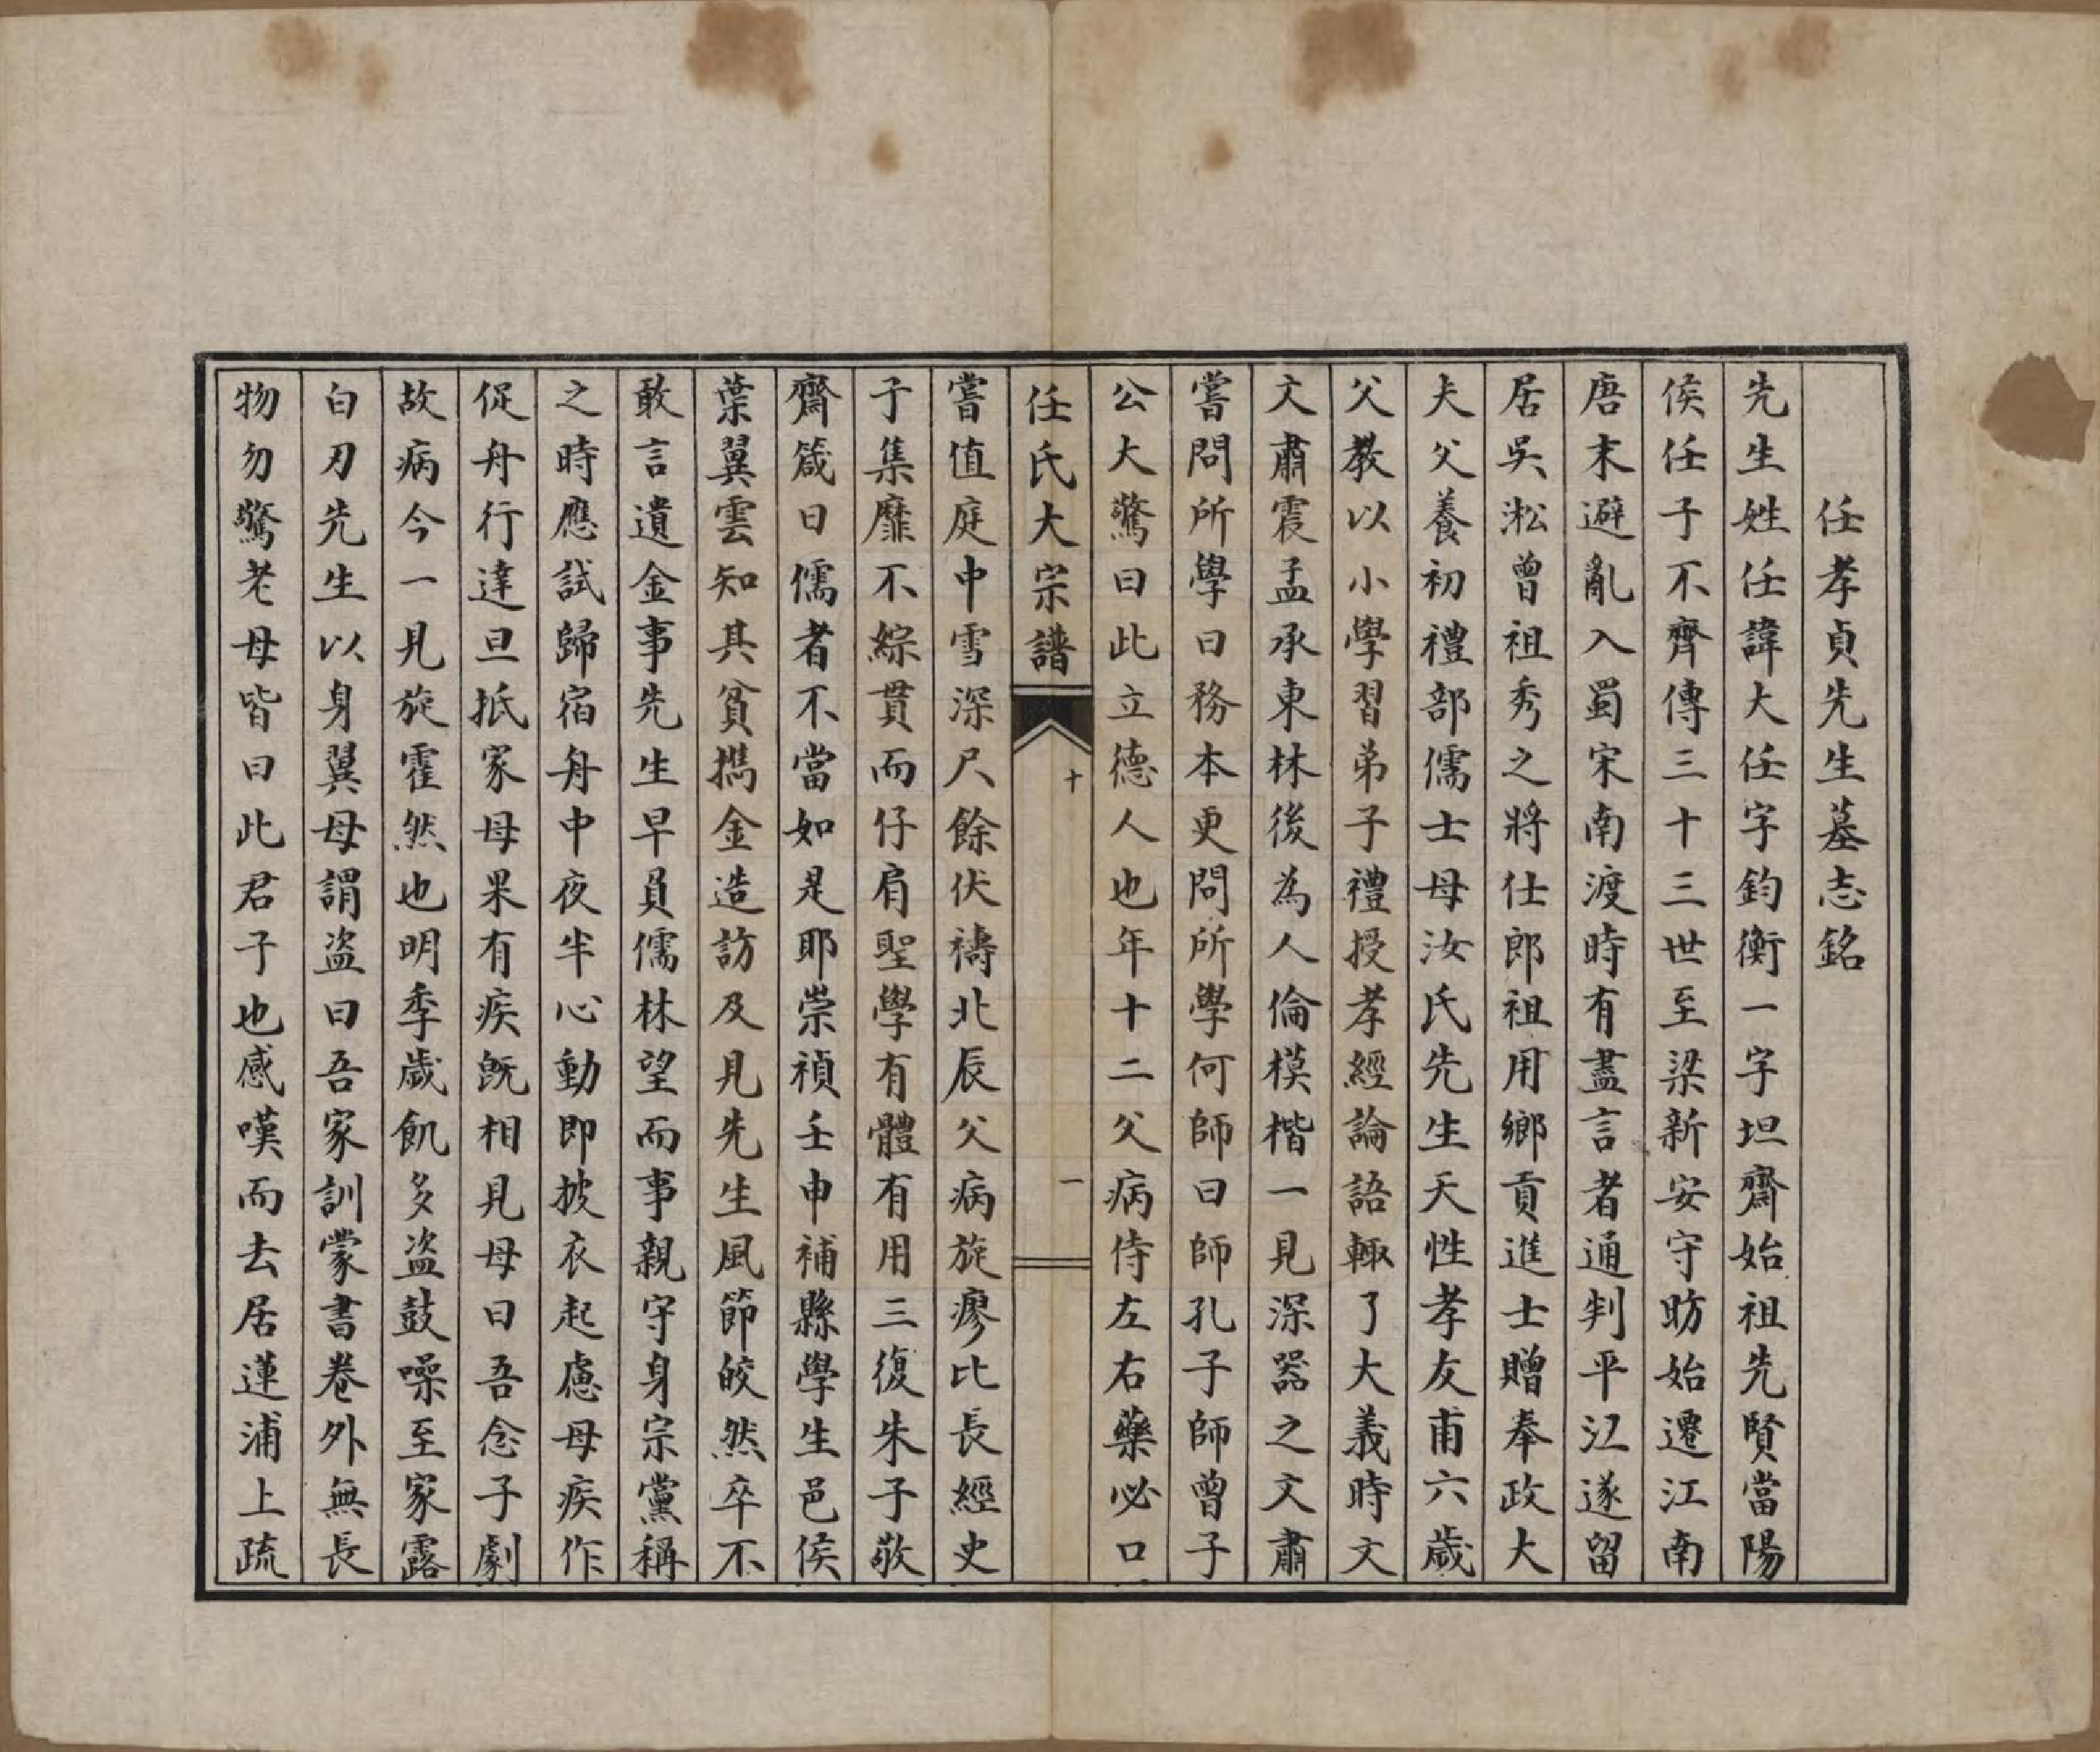 任孝貞先生墓志銘
先生姓任諱大任字鈞衡一字坦齋始祖先賢當陽
侯任子不齊傳三十三世至梁新安守昉始遷江南
唐末避亂入蜀宋南渡時有盡言者通判平江遂留
居吳淞曾祖秀之將仕郎祖用鄉貢進士贈奉政大
夫父養初禮部儒士母汝氏先生天性孝友甫六歲
父教以小學習弟子禮授孝經論語輙了大義時文
文肅震孟承東林後為人倫模楷一見深器之文肅
嘗問所學曰務本更問所學何師曰師孔子師曾子
公大驚曰此立德人也年十二父病侍左右藥必口
任氏大宗譜
十
一
嘗值庭中雪深尺餘伏禱北辰父病旋瘳比長經史
子集靡不綜貫而仔肩聖學有體有用三復朱子敬
齋箴曰儒者不當如是耶崇禎壬申補縣學生邑侯
葉翼雲知其貧攜金造訪及見先生風節皎然卒不
敢言遺金事先生早員儒林望而事親守身宗黨稱
之時應試歸宿舟中夜半心動即披衣起慮母疾作
促舟行達旦抵家母果有疾旣相見母曰吾念子劇
故病今一見旋霍然也明季歲飢多盜鼓噪至家露
白刃先生以身翼母謂盜曰吾家訓蒙書卷外無長
物勿驚老母皆曰此君子也感嘆而去居蓮浦上疏